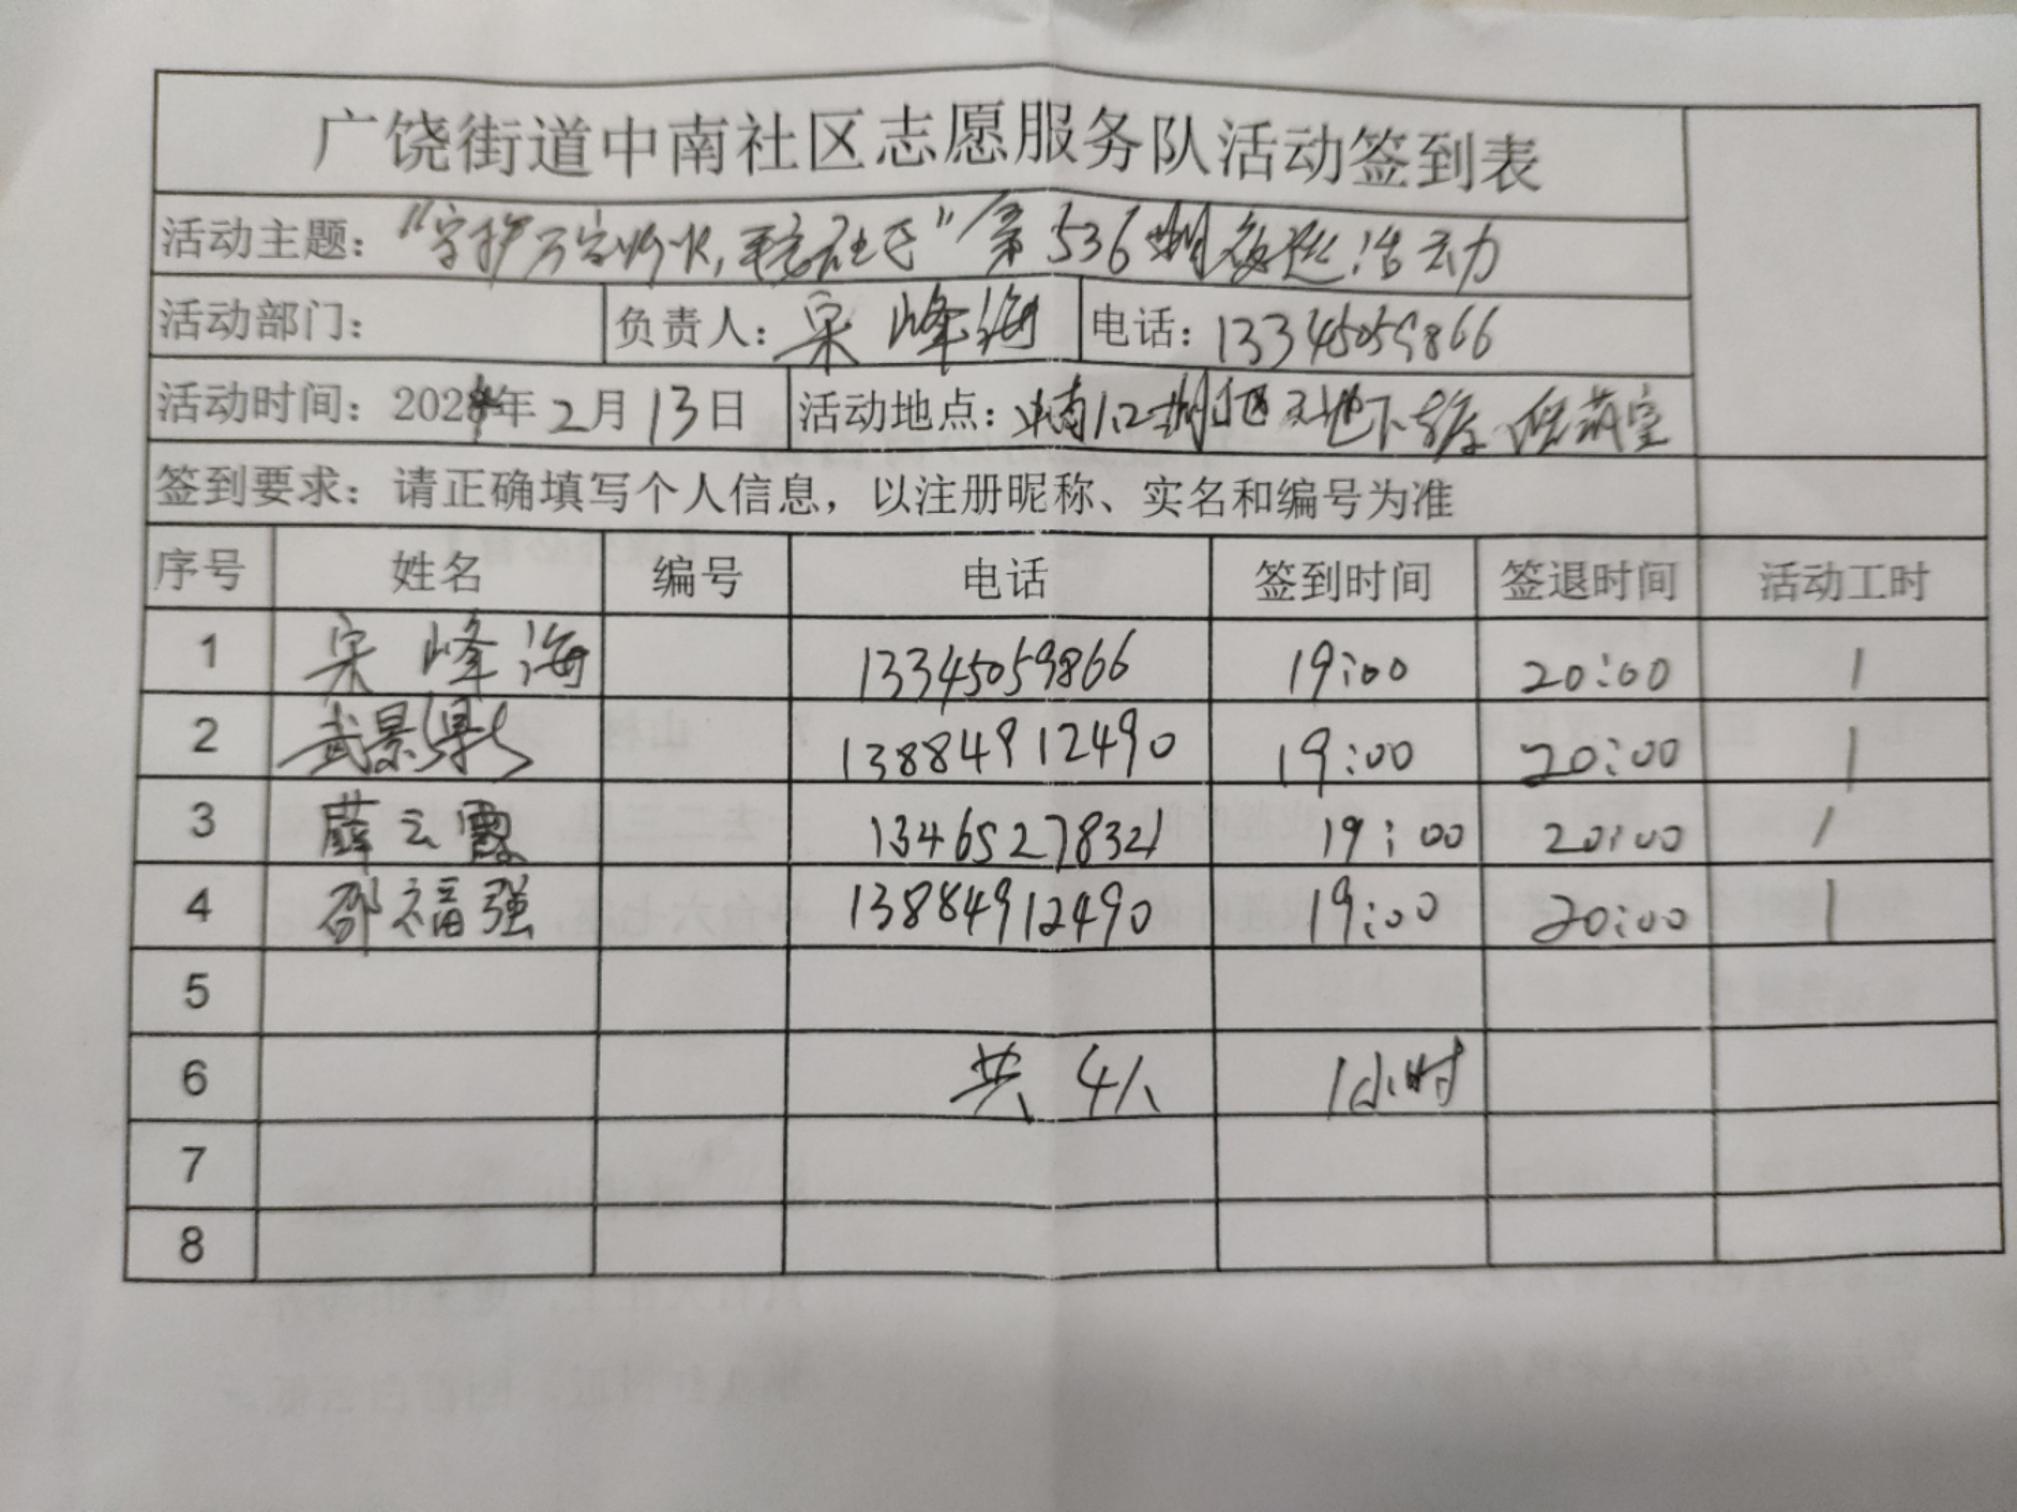 广饶街道中南社区志愿服务队活动签到表
活动主题：“守护万家灯火，平安社区”第536期夜巡活动
活动部门： 负责人：宋峰海 电话：13345059866
活动时间：2024年2月13日 活动地点：中南1.2期小区及地下车库
签到要求：请正确填写个人信息，以注册昵称、实名和编号为准
序号 姓名 编号 电话 签到时间 签退时间 活动工时
1 宋峰海 13345059866 19:00 20:00 1
2 武景 13884912490 19:00 20:00 1
3 薛云霞 13465278321 19:00 20:00 1
4 邵福强 13884912490 19:00 20:00 1
5
6 共4人 1小时
7
8